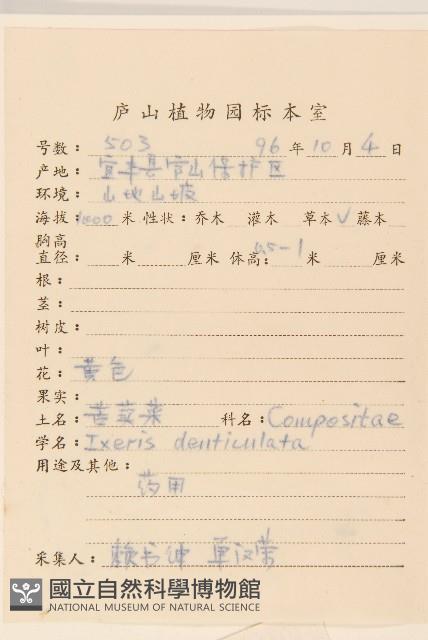 庐山植物园标本室
号数：503 96年10月4日
产地：宜丰县官山保护区
环境：山地山坡
海拔：1000米 性状：乔木 灌木 草本√ 藤本
胸高
直径： 米 厘米 体高：0.5-1 米 厘米
根：
茎：
树皮：
叶：
花：黄色
果实：
土名：苦荬菜 科名：Compositae
学名：Ixeris denticulata
用途及其他：
药用
采集人：赖书绅 单汉荣
國立自然科學博物館
NATIONAL MUSEUM OF NATURAL SCIENCE